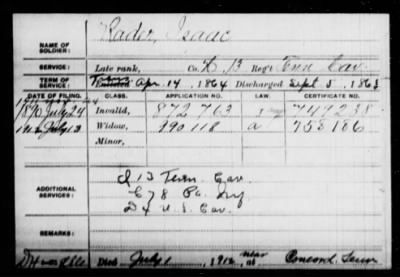 NAME OF SOLDIER: Rader, Isaac
SERVICE: Late rank, Co. K, 13 Reg't Tenn Cav.
TERM OF SERVICE: Enlisted Apr. 14, 1864 Discharged Sept 5, 1865
DATE OF FILING. CLASS. APPLICATION NO. LAW. CERTIFICATE NO.
1890 July 24 Invalid, 872 763 749238
1912 July 13 Widow, 990 118 a 753 186
Minor,
ADDITIONAL SERVICES: I 13 Tenn. Cav.
E 78 Pa. Inf
D 4 U. S. Cav.
REMARKS:
Died July 1, 1912, near at Concord, Tenn